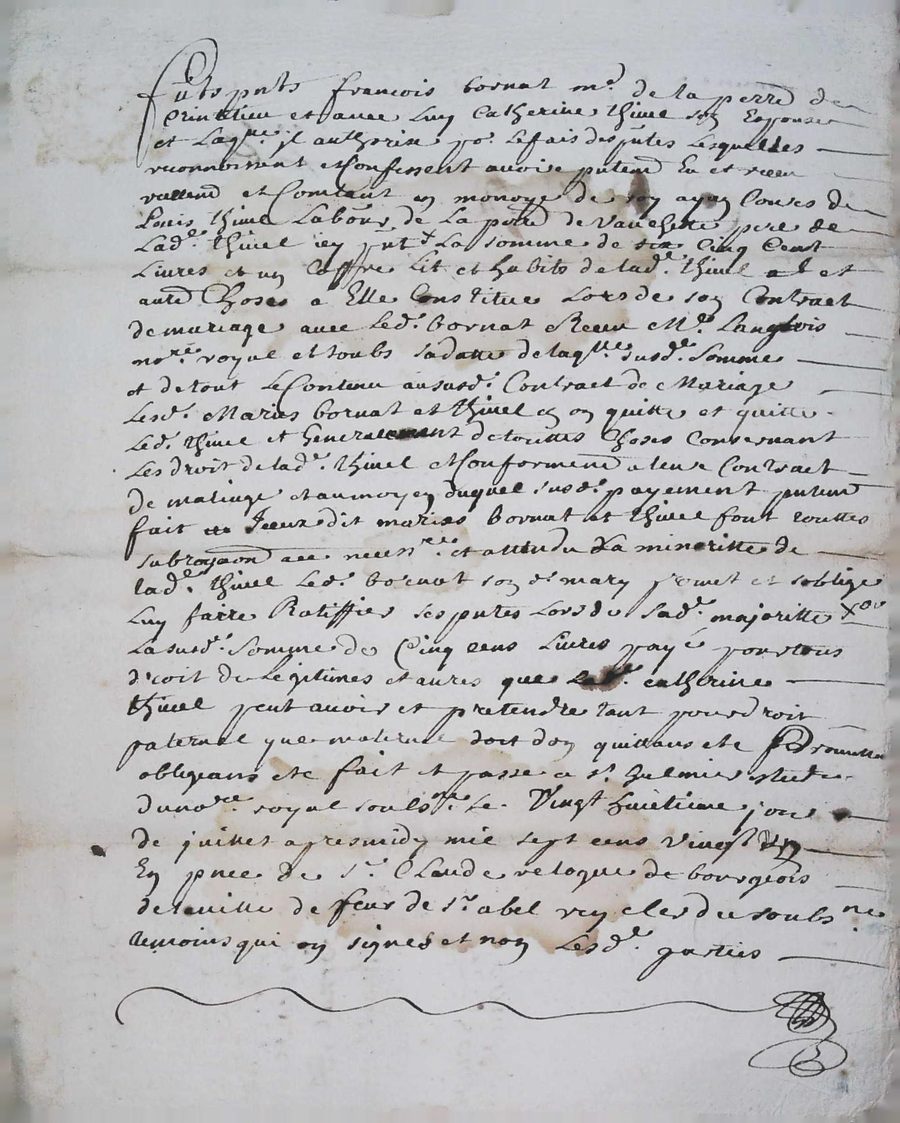 furts pnts françois bornat md. de la perrd de
et avec Luy Catherine thivel son Espouse
et Laqlle jl authorise po. Le fais des pntes Lesquelles
reconnoissent et Confessent avoir putemd Eu et receu
reellemd et Comtant en monoye de ayan Coures de
Louis thivel Labour de La perrd de pere de
Lade. thivel jcy pnt La somme de Cinq Cent
Livres et un Coffre Lit et habits de lade. thivel et
autre Choses a Elle Constitue Lors de son Contract
de mariage avec Led. bornat Receu Me. Langlois
nore. royal et soubs sa datte de laqlle susde. somme
et de tout Le Contenu au susd. Contract de Mariage
Lesd. Maries bornat et thivel en on quitte et quitte
Led. thivel et Generalement de touttes Choses Consernant
Les droit de lade. thivel et Conformemd a leur Contract
de matiage et au moyen duquel susd. payement putemd
fait Jceux dit maries bornat et thivel font touttes
subrogaon necesres et attendu La minoritte de
lade. thivel Led. bornat son d. mary promet et soblige
Luy faire Ratiffier ses pntes Lors de sade. majoritte
La susde. somme de Cinq cens Livres payé pour tous
droit de Légitimes et autres que Lade. catherine
thivel peut avoir et pretendre tant pour droit
paternel que maternel dont don quittans etc Promettan
obligeans etc fait et passe a st. hulmier
du nore royal soubsne. Le Vingt huitieme jour
de juillet apres midy mil sept cens Vingt
En pnce de Sr. Claude reloque de bourgeois
de laville de feur de Sr. abel rey clerc du soubsne
temoins qui on signes et non Lesd. parties